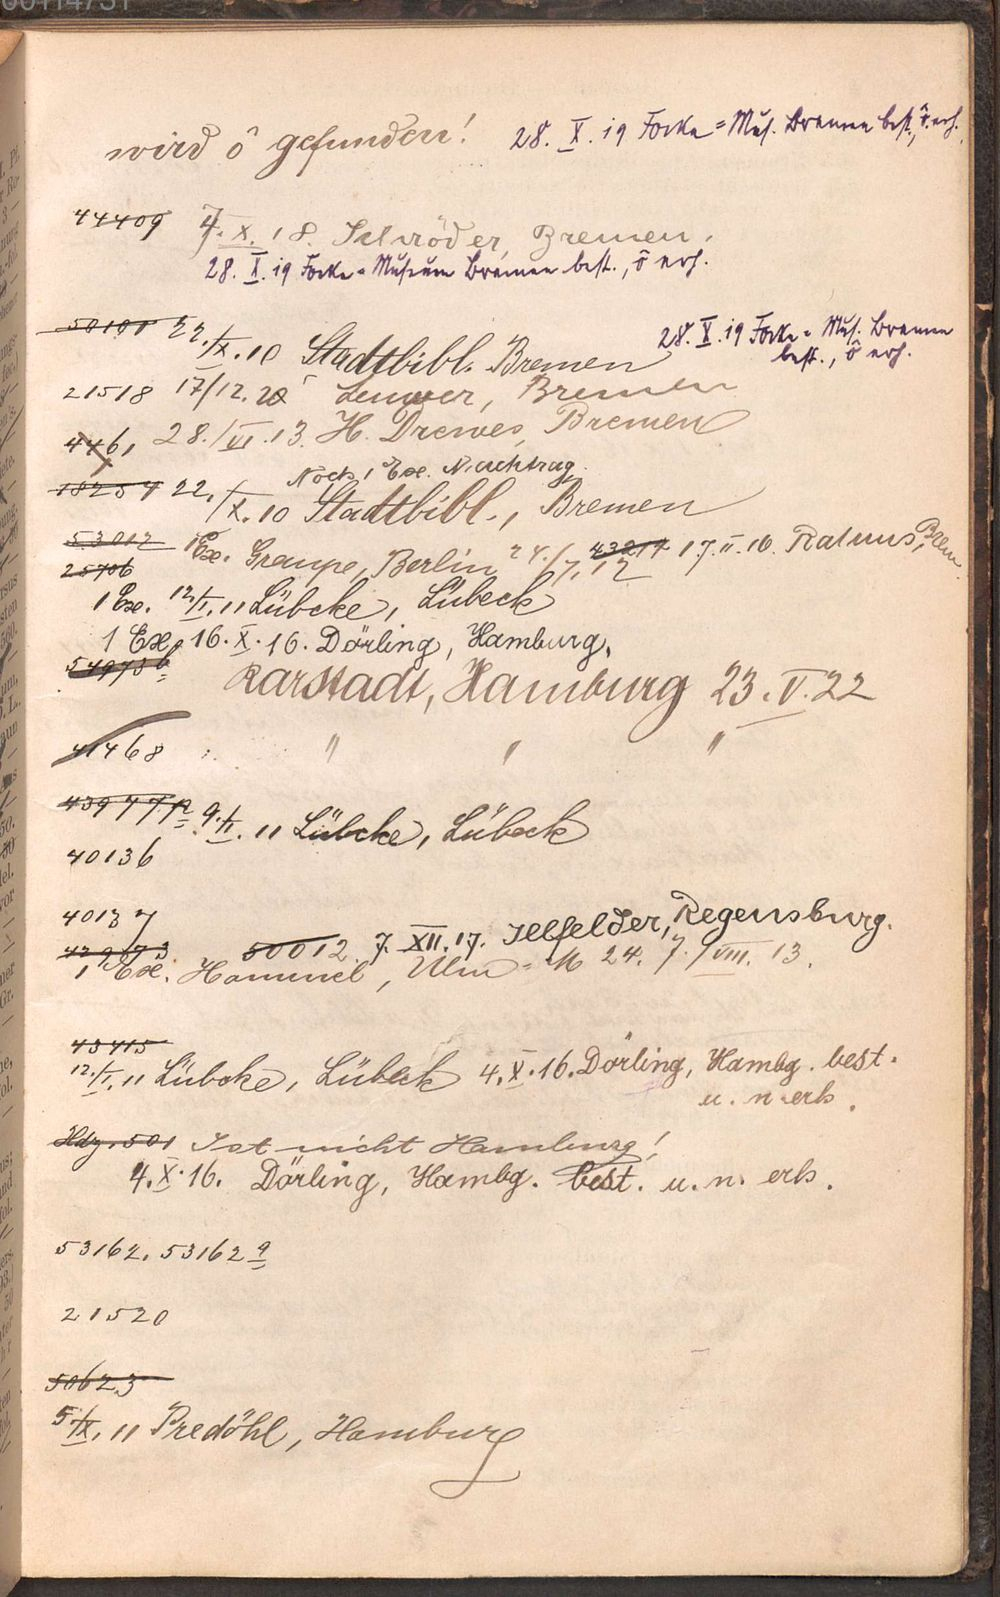 wird ô gefunden! 28. X. 19 Focke = Mus. Bremen best., ô erh.
44409 7. X. 18. Schröder, Bremen.
28. X. 19 Focke = Museum Bremen best., ô erh.
50101 22./IX. 10 Stadtbibl. Bremen
28. X. 19 Focke = Mus. Bremen
best., ô erh.
21518 17/12. 20 Leuwer, Bremen
4461 28./VI. 13. H. Drewes, Bremen
Noch 1 Ex. Nachtrag
18254 22./IX. 10 Stadtbibl., Bremen
53012 1 Ex. Graupe, Berlin 24./7. 12 43217 17. II. 16. Ratmus, Brem.
25706
1 Ex. 12/I. 11 Lübcke, Lübeck
1 Ex. 16. X. 16. Dörling, Hamburg.
54973b Karstadt, Hamburg 23. V. 22
41468 : " " "
43977a 9./II. 11 Lübcke, Lübeck
40136
40137
50012. 7. XII. 17. Helfelder, Regensburg.
1 Ex. Hammel, Ulm 24. 7./VIII. 13.
43415
12./I. 11 Lübcke, Lübeck 4. X. 16. Dörling, Hambg. best.
u. n. erh.
Hdz. 501 Ist nicht Hamburg!
4. X. 16. Dörling, Hambg. best. u. n. erh.
53162. 53162a
21520
50623
5/IX. 11 Predöhl, Hamburg